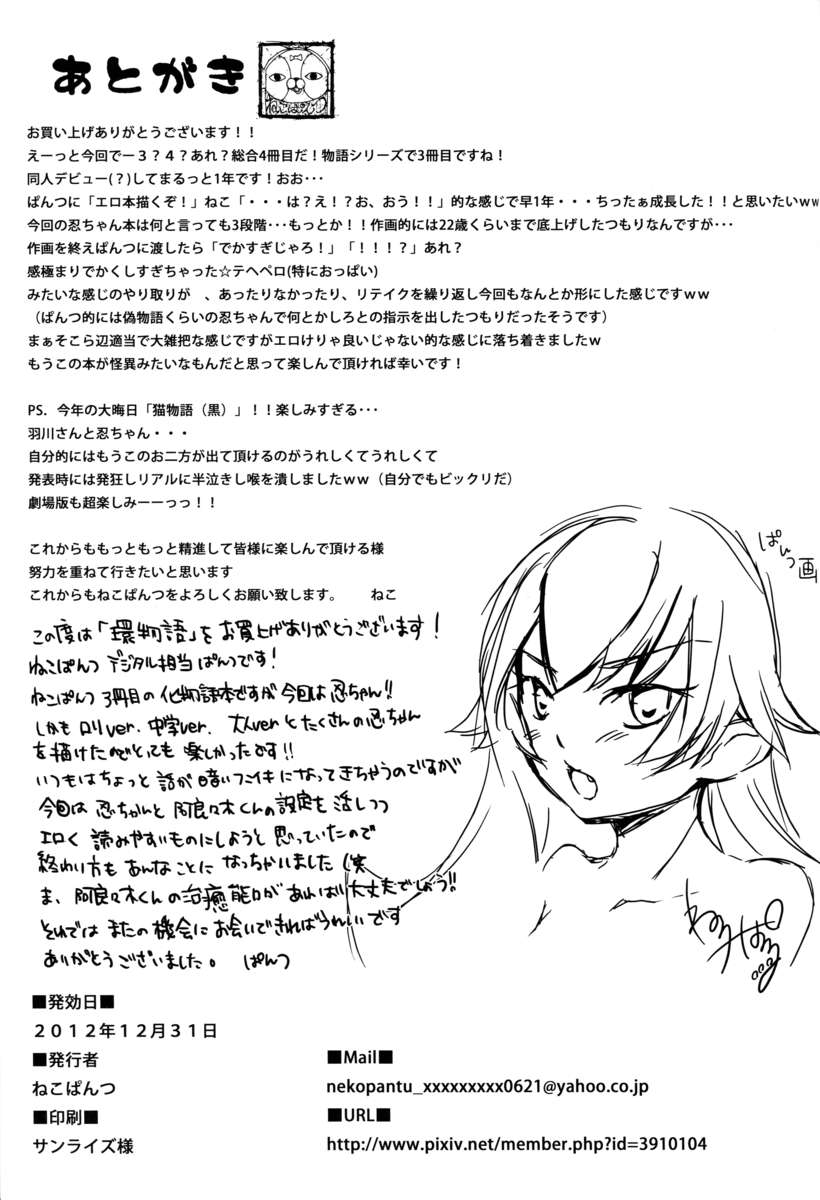 あとがき
ねこぱんつ
お買い上げありがとうございます！！
えーっと今回でー３？４？あれ？総合4冊目だ！物語シリーズで3冊目ですね！
同人デビュー(？)してまるっと1年です！おお･･･
ぱんつに「エロ本描くぞ！」ねこ「・・・は？え！？お、おう！！」的な感じで早1年・・・ちったぁ成長した！！と思いたいｗｗ
今回の忍ちゃん本は何と言っても3段階･･･もっとか！！作画的には22歳くらいまで底上げしたつもりなんですが･･･
作画を終えぱんつに渡したら「でかすぎじゃろ！」「！！！？」あれ？
感極まりでかくしすぎちゃった☆テヘペロ(特におっぱい)
みたいな感じのやり取りが　、あったりなかったり、リテイクを繰り返し今回もなんとか形にした感じですｗｗ
（ぱんつ的には偽物語くらいの忍ちゃんで何とかしろとの指示を出したつもりだったそうです）
まぁそこら辺適当で大雑把な感じですがエロけりゃ良いじゃない的な感じに落ち着きましたｗ
もうこの本が怪異みたいなもんだと思って楽しんで頂ければ幸いです！
PS．今年の大晦日「猫物語（黒）」！！楽しみすぎる･･･
羽川さんと忍ちゃん・・・
自分的にはもうこのお二方が出て頂けるのがうれしくてうれしくて
発表時には発狂しリアルに半泣きし喉を潰しましたｗｗ（自分でもビックリだ）
劇場版も超楽しみーーっっ！！
これからももっともっと精進して皆様に楽しんで頂ける様
努力を重ねて行きたいと思います
これからもねこぱんつをよろしくお願い致します。　　ねこ
ぱんつ画
この度は「環物語」をお買上げありがとうございます！
ねこぱんつ デジタル担当 ぱんつです！
ねこぱんつ 3冊目の化物語本ですが今回は忍ちゃん!!
しかもロリver. 中学ver. 大人verとたくさんの忍ちゃん
を描けたのでとても楽しかったです!!
いつもはちょっと話が暗いフンイキになってきちゃうのですが
今回は忍ちゃんと阿良々木くんの設定を活しつつ
エロく読みやすいものにしようと思っていたので
終わり方もあんなことになっちゃいました(笑
ま、阿良々木くんの治癒能力があれば大丈夫でしょう!!
それではまたの機会にお会いできればうれしいです
ありがとうございました。　ぱんつ
■発効日■
２０１２年１２月３１日
■発行者
ねこぱんつ
■印刷■
サンライズ様
■Mail■
nekopantu_xxxxxxxxx0621@yahoo.co.jp
■URL■
http://www.pixiv.net/member.php?id=3910104